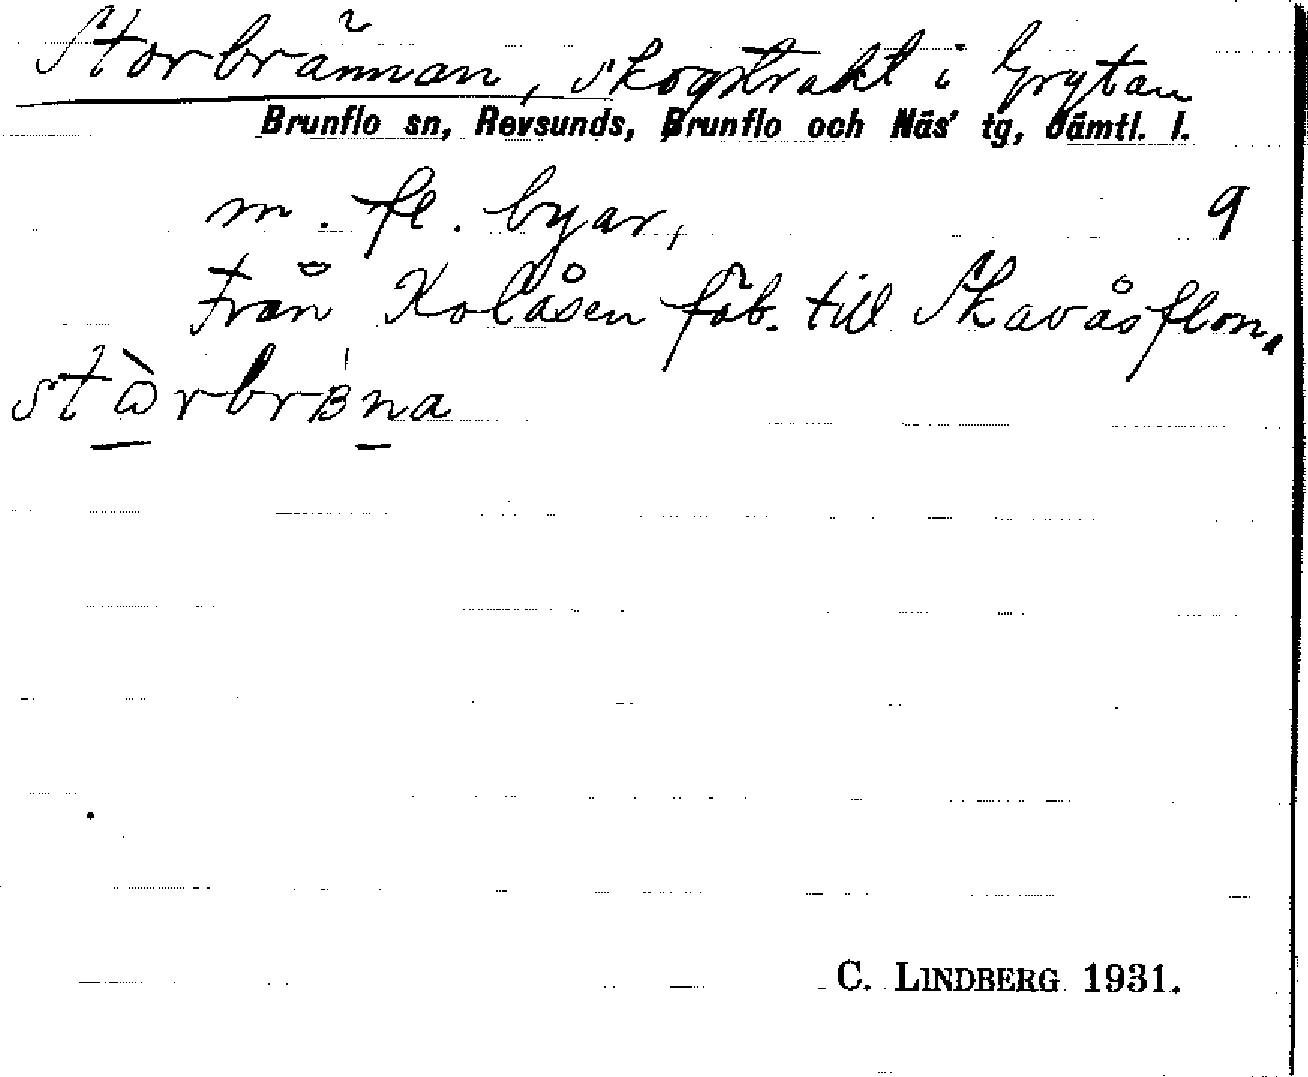 Storbrännan, skogstrakt i Grytan
Brunflo sn, Revsunds, Brunflo och Näs' tg, Jämtl. l.
m. fl. byar, 9
Från Kolåsen fäb. till Skavåsflon,